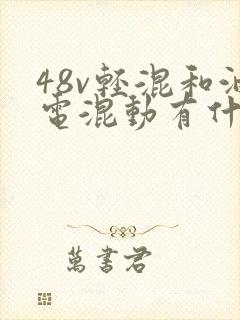 48v轻混和油
電混動有什
萬書君